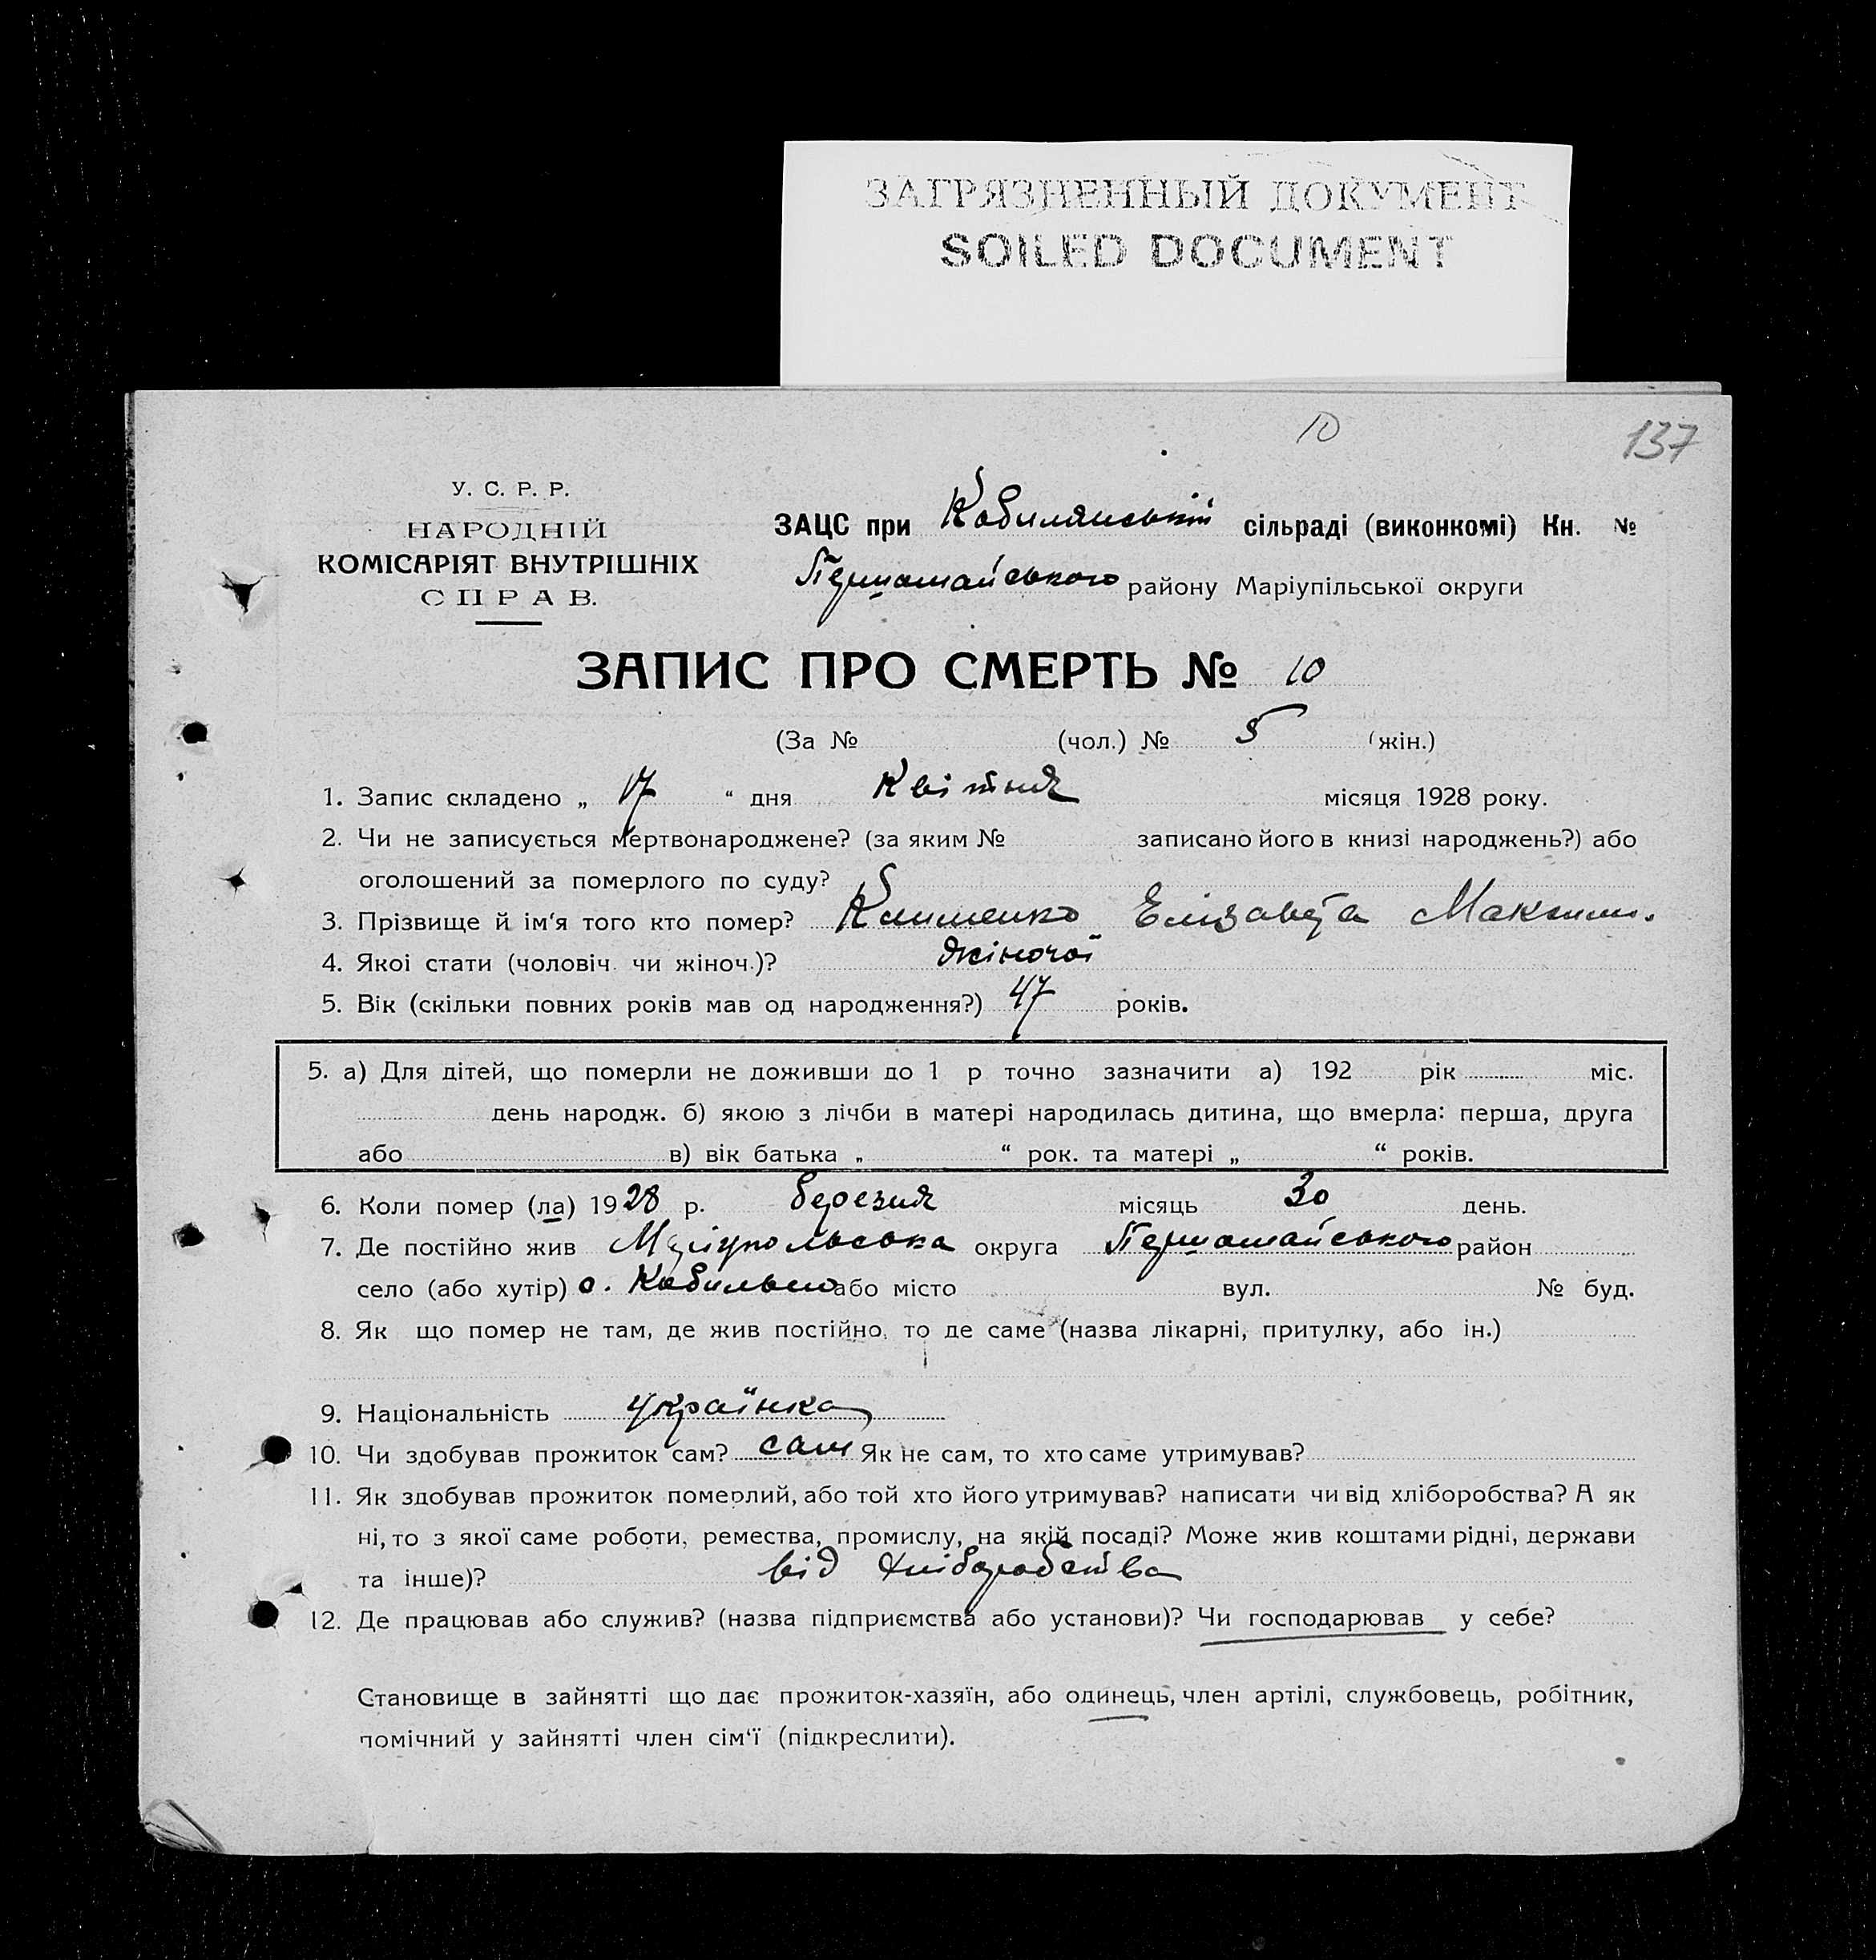 ЗАГРЯЗНЕННЫЙ ДОКУМЕНТ
SOILED DOCUMENT
10
137
У. С. Р. Р.
НАРОДНІЙ
КОМІСАРІЯТ ВНУТРІШНІХ
СПРАВ.
ЗАЦС при Кобилянській сільраді (виконкомі) Кн. №
Першомайського району Маріупільської округи
ЗАПИС ПРО СМЕРТЬ № 10
(За № (чол.) № 5 (жін.)
1. Запис складено „ 17 “ дня Квітня місяця 1928 року.
2. Чи не записується мертвонароджене? (за яким № записано його в книзі народжень?) або
оголошений за померлого по суду?
3. Прізвище й ім‘я того кто помер? Клименко Елізавета Максим.
4. Якоі стати (чоловіч. чи жіноч.)? жіночої
5. Вік (скільки повних років мав од народження?) 47 років.
5. а) Для дітей, що померли не доживши до 1 р точно зазначити а) 192 рік міс.
день народж. б) якою з лічби в матері народилась дитина, що вмерла: перша, друга
або в) вік батька „ “ рок. та матері „ “ років.
6. Коли помер (ла) 1928 р. березня місяць 30 день.
7. Де постійно жив округа Першомайського район
село (або хутір) с. або місто вул. № буд.
8. Як що помер не там, де жив постійно, то де саме (назва лікарні, притулку, або ін.)
9. Національність українка
10. Чи здобував прожиток сам? сам Як не сам, то хто саме утримував?
11. Як здобував прожиток померлий, або той хто його утримував? написати чи від хліборобства? А як
ні, то з якої саме роботи, ремества, промислу, на якій посаді? Може жив коштами рідні, держави
та інше)? від хліборобства
12. Де працював або служив? (назва підприємства або установи)? Чи господарював у себе?
Становище в зайнятті що дає прожиток-хазяїн, або одинець, член артілі, службовець, робітник,
помічний у зайнятті член сім‘ї (підкреслити).